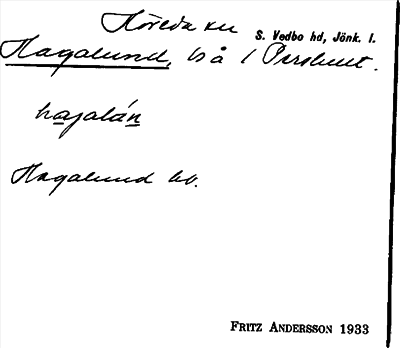 Höreda sn
S. Vedbo hd, Jönk. l.
Hagalund, bs å
hagalán
Hagalund bs.
FRITZ ANDERSSON 1933